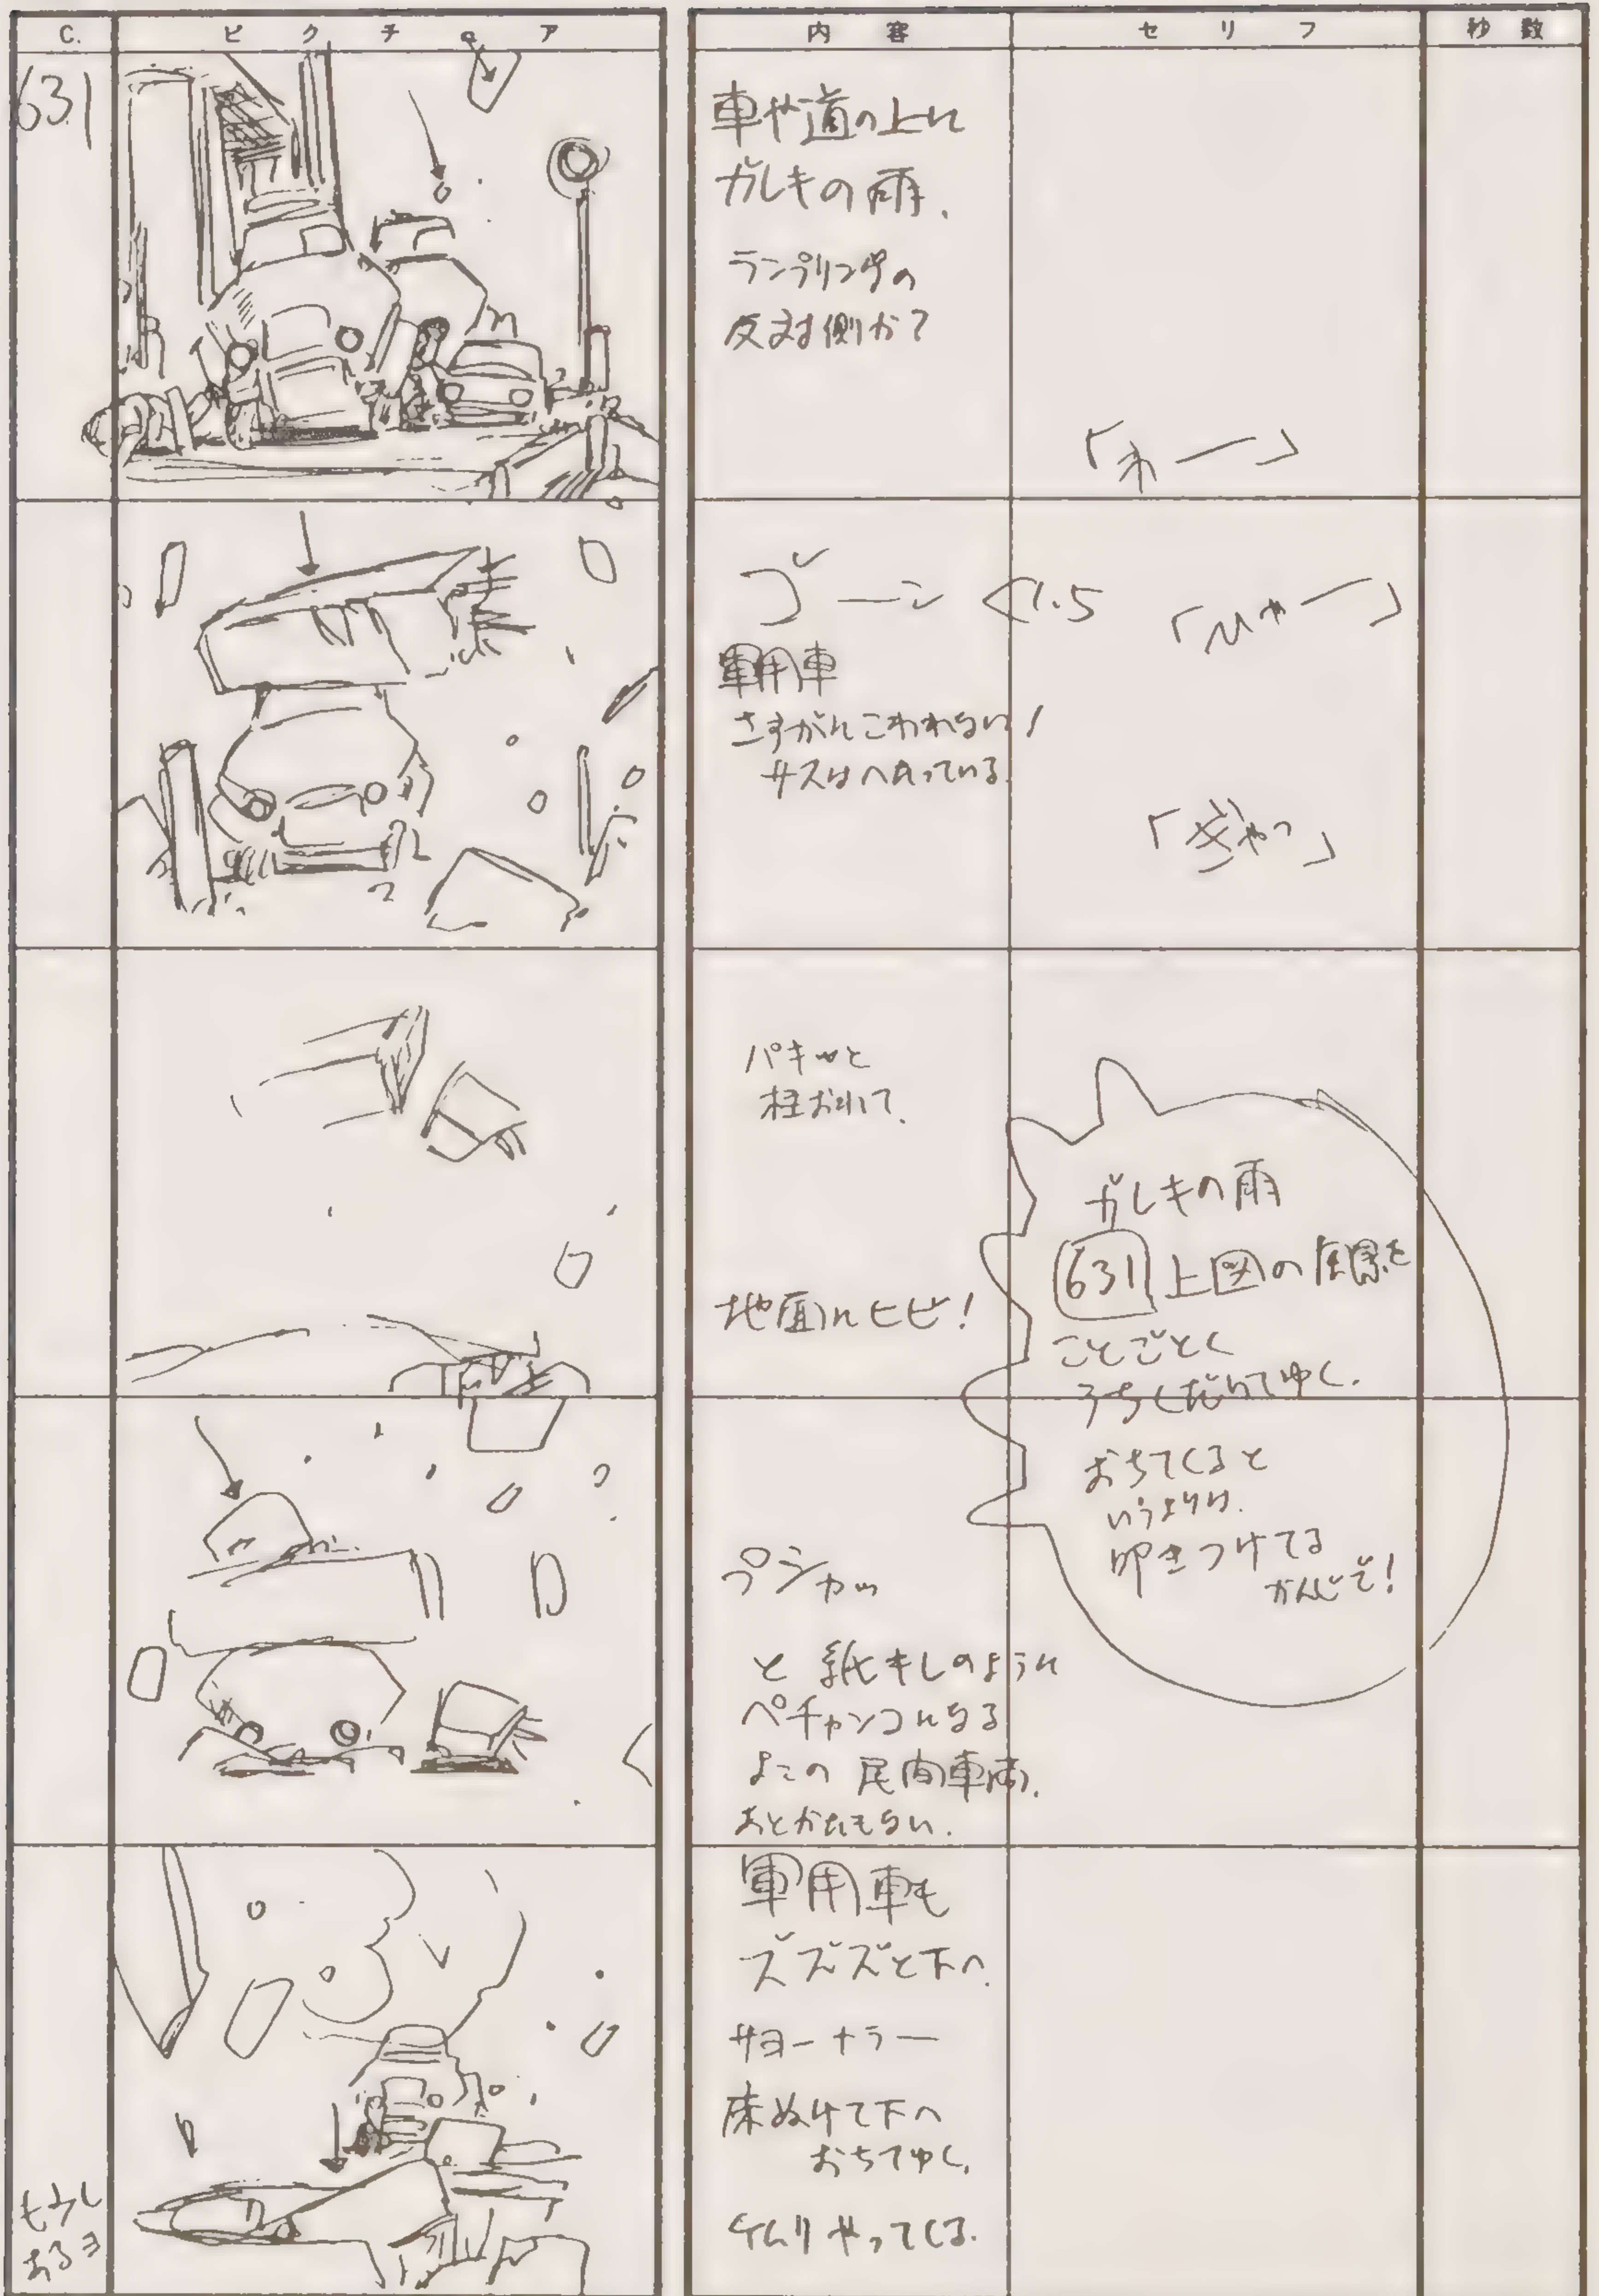 C.
ピクチュア
内容
セリフ
秒数
631
車や道の上に
ガレキの雨.
ランプリングの
反対側から
「わー」
ゴーン <1.5
「ひゃー」
軍用車
さすがにこわれない!
サスはへたっている.
「ぎゃっ」
パキッと
柱おれて.
地面にヒビ!
ガレキの雨
631 上図の風景を
ことごとく
うちくだいてゆく.
おちてくると
いうよりは.
叩きつけてる
かんじで!
プシャッ
と紙キレのように
ペチャンコになる
よこの民間車両.
あとかたもない.
軍用車も
ズズズと下へ.
サヨーナラー
床ぬけて下へ
おちてゆく.
ケムリやってくる.
もう少し
あるヨ